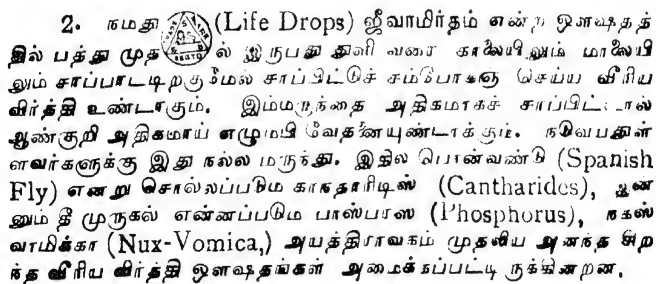 2. நமது (Life Drops) ஜீவாமிர்தம் என்ற ஔஷதத்
தில் பத்து முத ல் இருபது துளி வரை காலையிலும் மாலையி
லும் சாப்பாட்டிற்குமேல் சாப்பிட்டுச் சம்போகஞ் செய்ய வீரிய
விர்த்தி உண்டாகும். இம்மருந்தை அதிகமாகச் சாப்பிட்டால்
ஆண்குறி அதிகமாய் எழும்பி வேதனையுண்டாக்கும்.
ளவர்களுக்கு இது நல்ல மருந்து. இதில் பொன்வண்டு (Spanish
Fly) என்று சொல்லப்படும் காந்தாரிடிஸ் (Cantharides), இன்
னும் தீ முருகல் என்னப்படும் பாஸ்பரஸ் (Phosphorus), நக்ஸ்
வாமிக்கா (Nux-Vomica,) அயத்திராவகம் முதலிய அனந்த சிற
ந்த வீரிய விர்த்தி ஔஷதங்கள் அமைக்கப்பட்டி ருக்கின்றன.